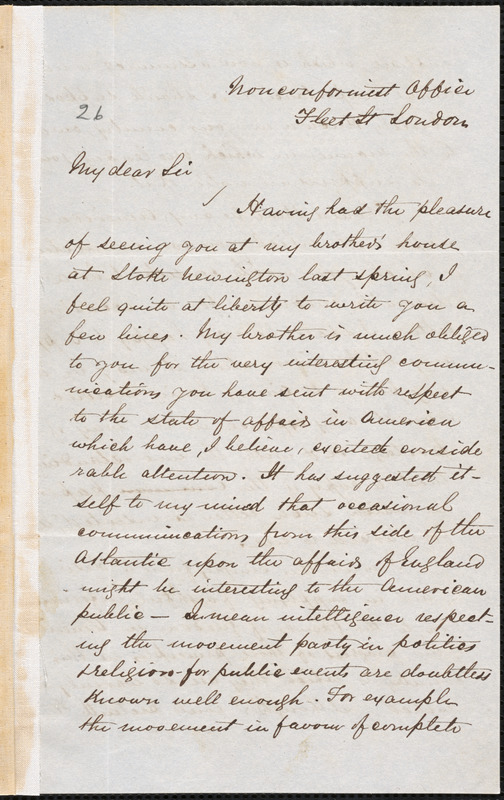 Nonconformist Office
Fleet St London
26
My dear Sir
Having had the pleasure
of seeing you at my brother's house
at Stoke Newington last spring, I
feel quite at liberty to write you a
few lines. My brother is much obliged
to you for the very interesting commu-
nications you have sent with respect
to the state of affairs in America
which have, I believe, excited conside
rable attention. It has suggested it-
self to my mind that occasional
communications from this side of the
Atlantic upon the affairs of England
might be interesting to the American
public — I mean intelligence respect-
ing the movement party in politics
& religion - for public events are doubtless
known well enough. For example
the movement in favour of complete